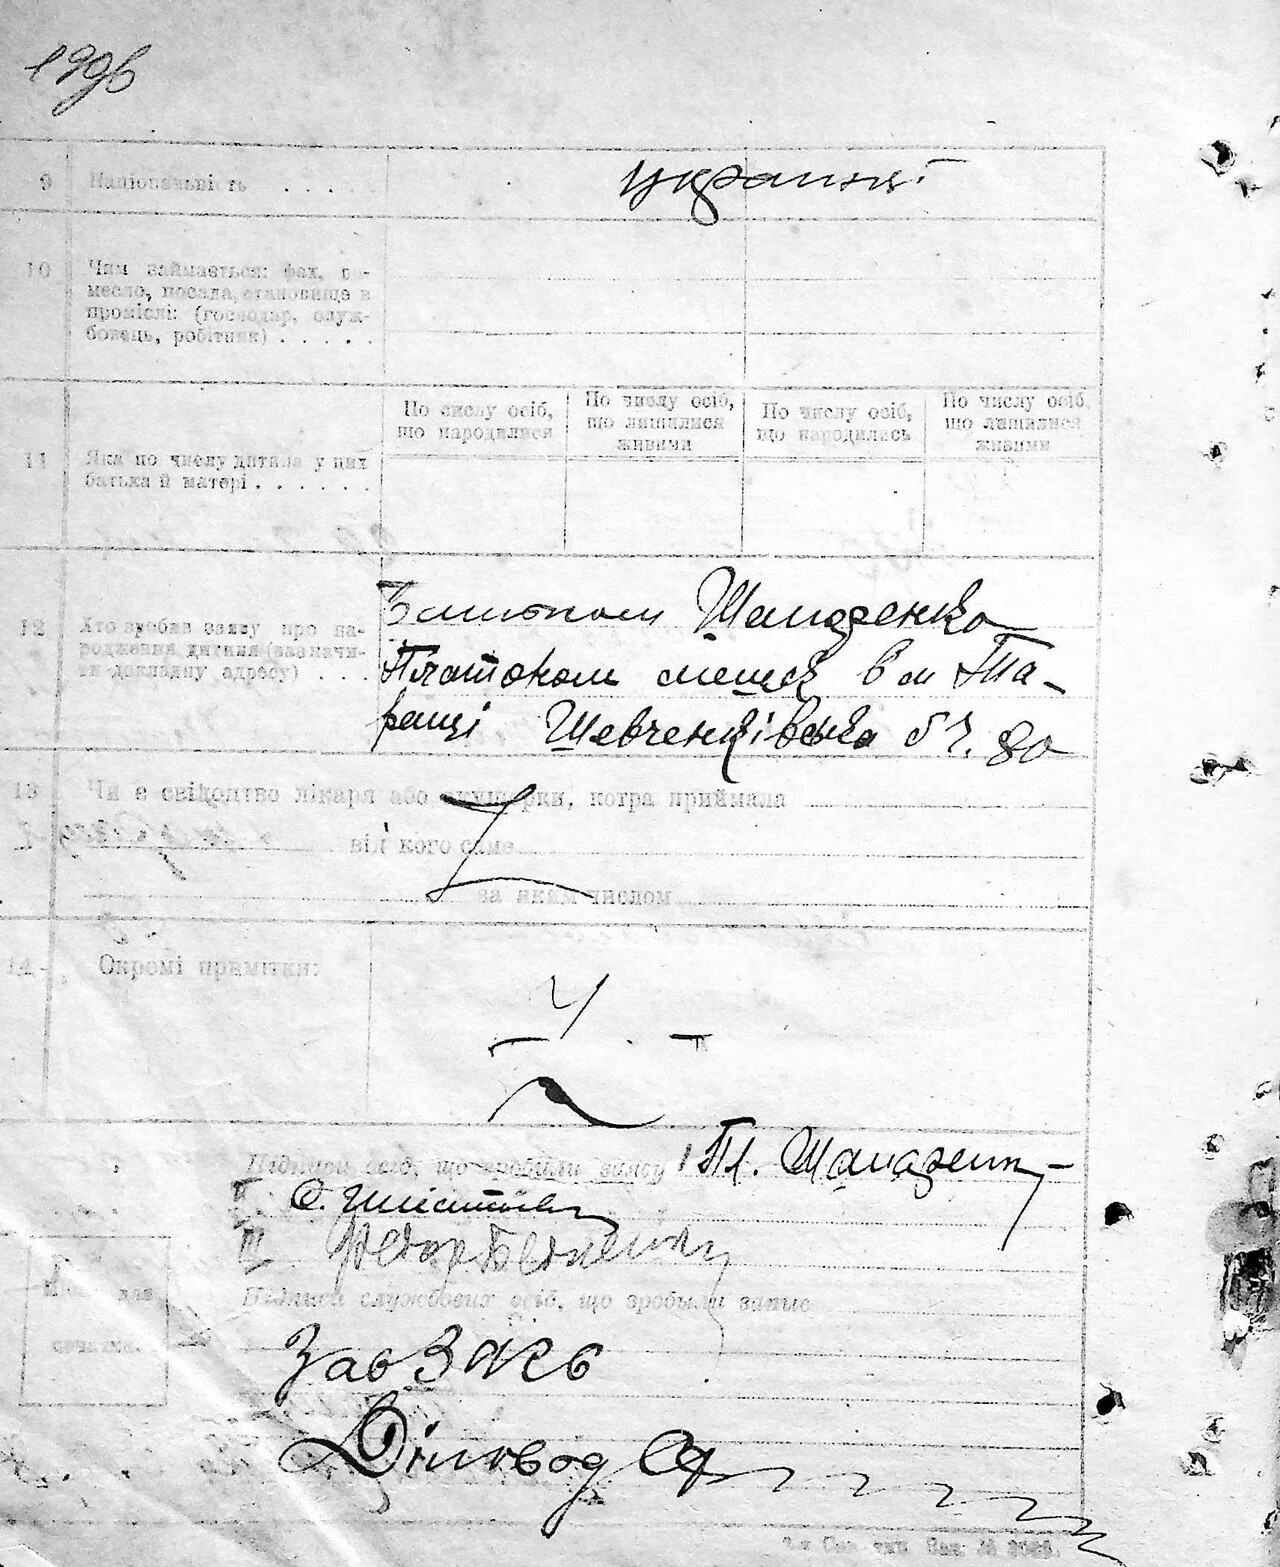 9 Національність . . . . . українці
10 Чим займається: фах, ре-
месло, посада, становище в
промислі: (господар, служ-
бовець, робітник) . . . . .
По числу осіб, що народилися
По числу осіб, що лишилися живими
По числу осіб, що народились
По числу осіб, що лишилися живими
11 Яка по числу дитина у цих
батька й матері . . . . . .
12 Хто зробив заяву про на-
родження дитини (зазначи-
ти докладну адресу) . . .
Шапаренко
Платоном мешк в м Та-
ращі Шевченківська б ч. 80
13 Чи є свідоцтво лікаря або акушерки, котра приймала
від кого саме
за яким числом
14 Окромі примітки:
Підписи осіб, що зробили заяву I Пл. Шапаренк
II
III Федор
Місце для
печатки.
Підписи службових осіб, що зробили запис
Зав ЗАГС
Діловод